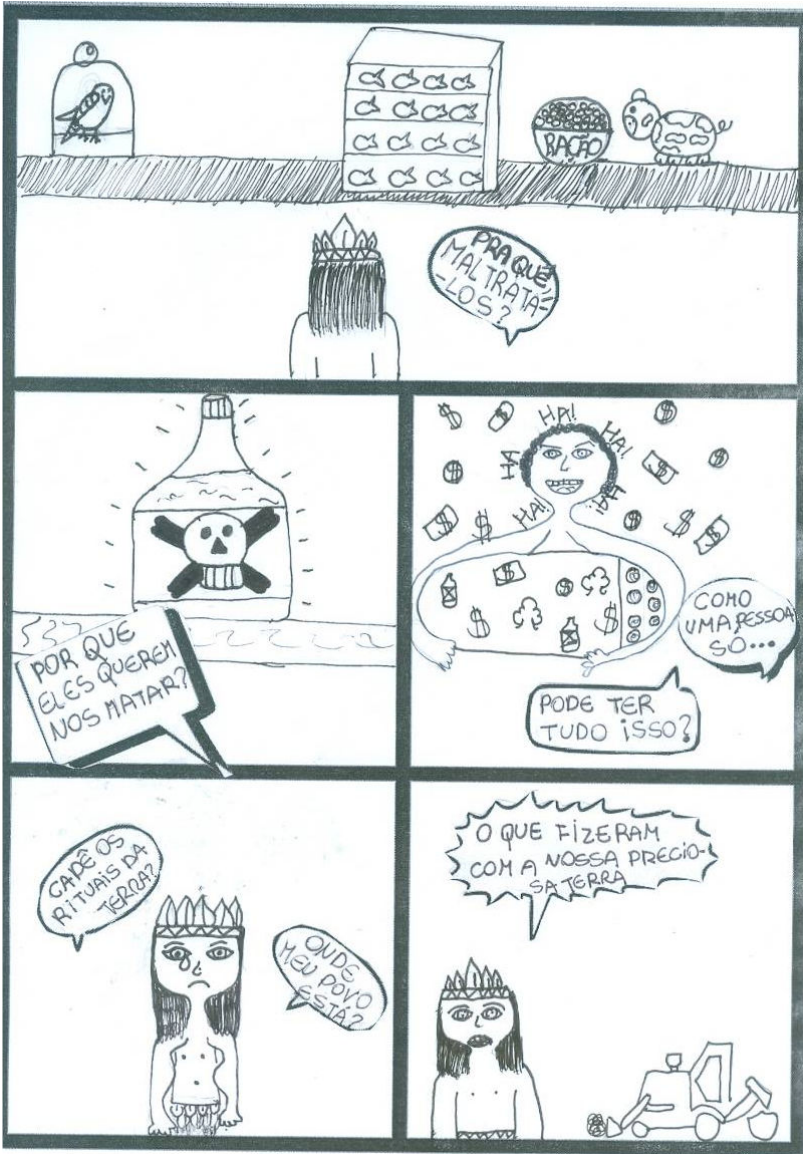 RAÇÃO
PRA QUÊ
MALTRATA-
-LOS?
POR QUE
ELES QUEREM
NOS MATAR?
HA!
HA!
HA!
HA!
HA!
$
COMO
UMA PESSOA
SÓ...
PODE TER
TUDO ISSO?
CADÊ OS
RITUAIS DA
TERRA?
ONDE
MEU POVO
ESTÁ?
O QUE FIZERAM
COM A NOSSA PRECIO-
SA TERRA